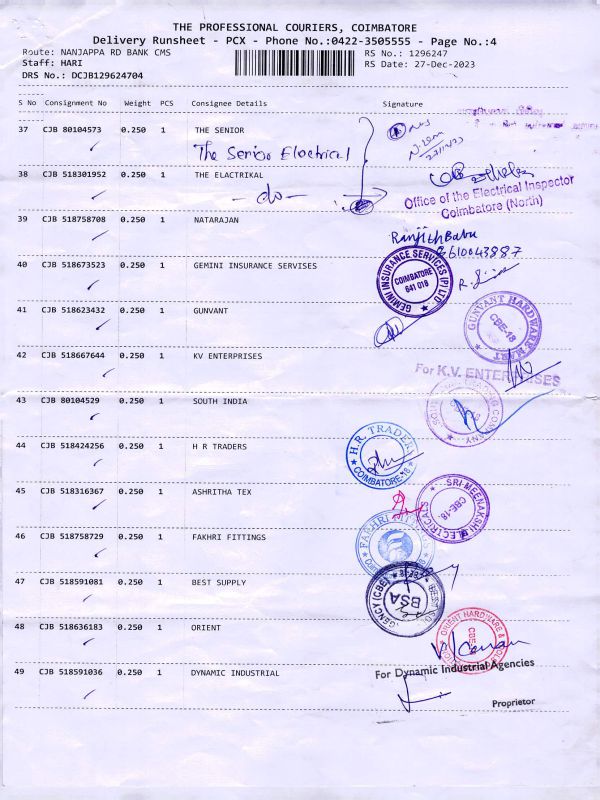 THE PROFESSIONAL COURIERS, COIMBATORE
Delivery Runsheet - PCX - Phone No.:0422-3505555 - Page No.:4
Route: NANJAPPA RD BANK CMS
RS No.: 1296247
Staff: HARI
RS Date: 27-Dec-2023
DRS No.: DCJB129624704
S No Consignment No Weight PCS Consignee Details Signature
37 CJB 80104573 0.250 1 THE SENIOR
The Senior Electrical
38 CJB 518301952 0.250 1 THE ELACTRIKAL
- do -
Office of the Electrical Inspector
Coimbatore (North)
39 CJB 518758708 0.250 1 NATARAJAN
Ranjith Babu
40 CJB 518673523 0.250 1 GEMINI INSURANCE SERVISES
GEMINI INSURANCE SERVICES (P) LTD
COIMBATORE
641 018
41 CJB 518623432 0.250 1 GUNVANT
GUNVANT HARDWARE MART
CBE-18
42 CJB 518667644 0.250 1 KV ENTERPRISES
For K.V. ENTERPRISES
43 CJB 80104529 0.250 1 SOUTH INDIA
44 CJB 518424256 0.250 1 H R TRADERS
H.R. TRADERS
COIMBATORE-18
45 CJB 518316367 0.250 1 ASHRITHA TEX
SRI MEENAKSHI ELECTRICALS
CBE-18
46 CJB 518758729 0.250 1 FAKHRI FITTINGS
FAKHRI
47 CJB 518591081 0.250 1 BEST SUPPLY
BSA
48 CJB 518636183 0.250 1 ORIENT
ORIENT HARDWARE &
49 CJB 518591036 0.250 1 DYNAMIC INDUSTRIAL
For Dynamic Industrial Agencies
Proprietor